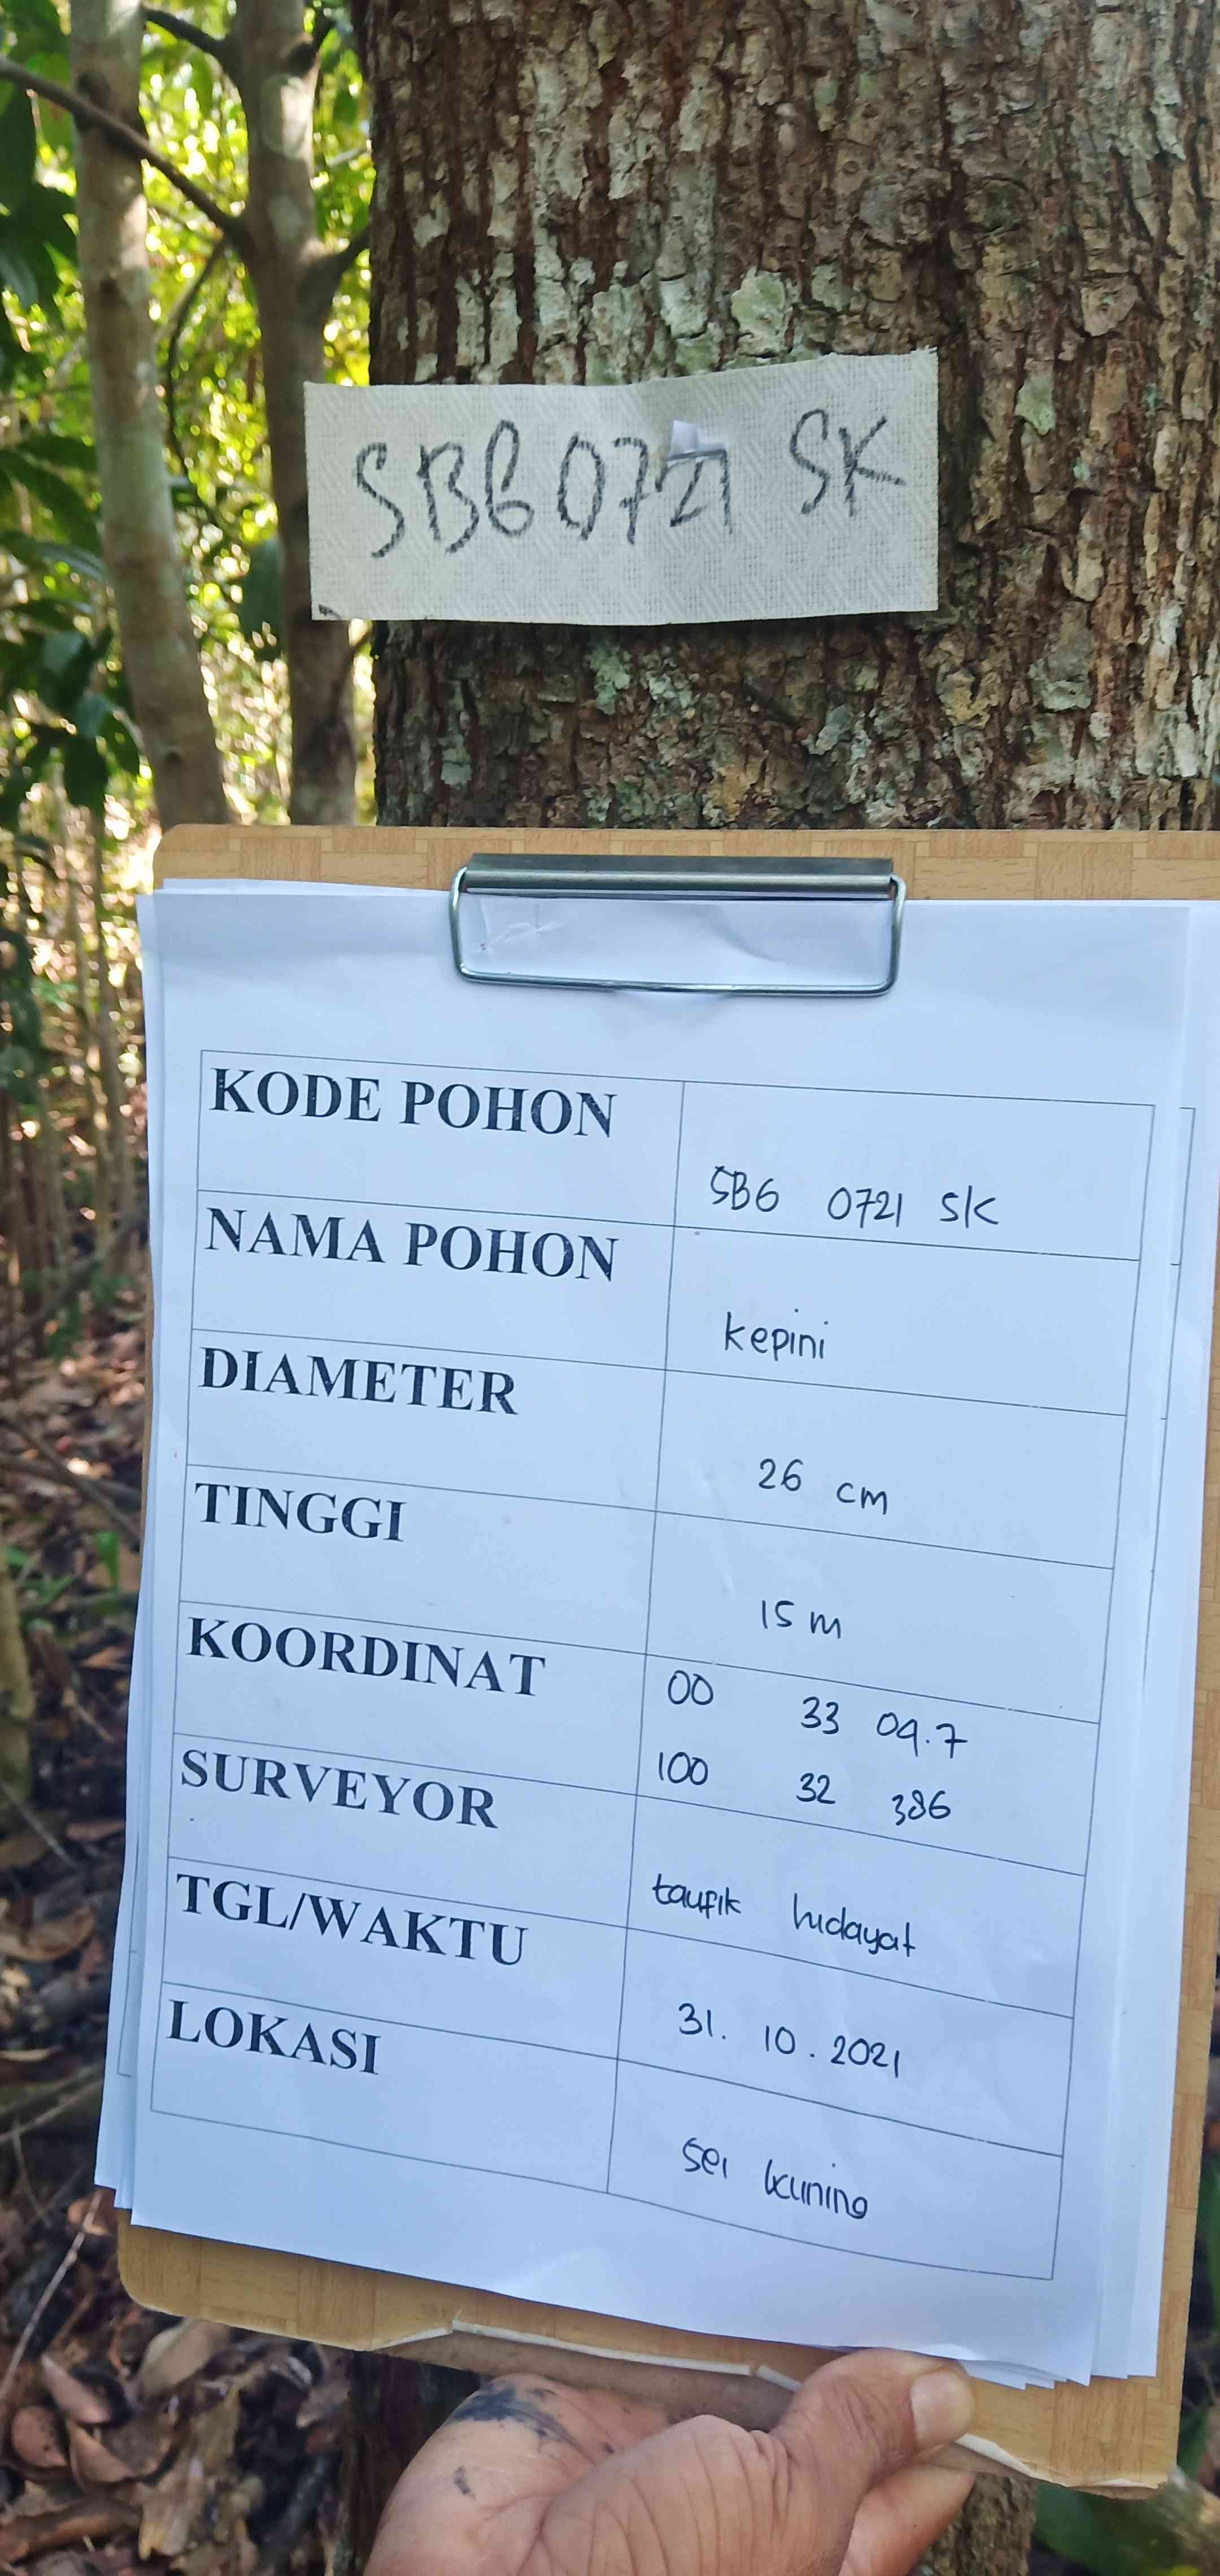 SB6 0721 SK
KODE POHON
SB6 0721 SK
NAMA POHON
kepini
DIAMETER
26 cm
TINGGI
15 m
KOORDINAT
00 33 09.7
100 32 386
SURVEYOR
taufik hidayat
TGL/WAKTU
31. 10. 2021
LOKASI
sei kuning